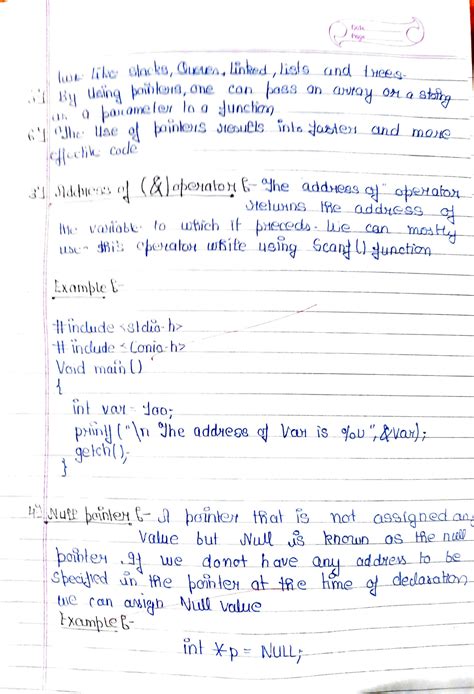 Date
Page
ture like stacks, Queues, Linked, lists and trees.
5.) By Using pointers, one can pass an array or a string
as a parameter to a function
6.) The Use of pointers results into faster and more
effective code
3.) Address of (&) operator :- The "address of" operator
returns the address of
the variable to which it preceds. We can mostly
use this operator while using Scanf() function
Example :-
# include <stdio.h>
# include <Conio.h>
Void main()
{
int var = 100;
printf ("\n The address of Var is %u", &Var);
getch();
}
4.) Null pointer :- A pointer that is not assigned any
value but Null is known as the null
pointer. If we donot have any address to be
specified in the pointer at the time of declaration
we can assign Null value
Example :-
int *p = NULL;